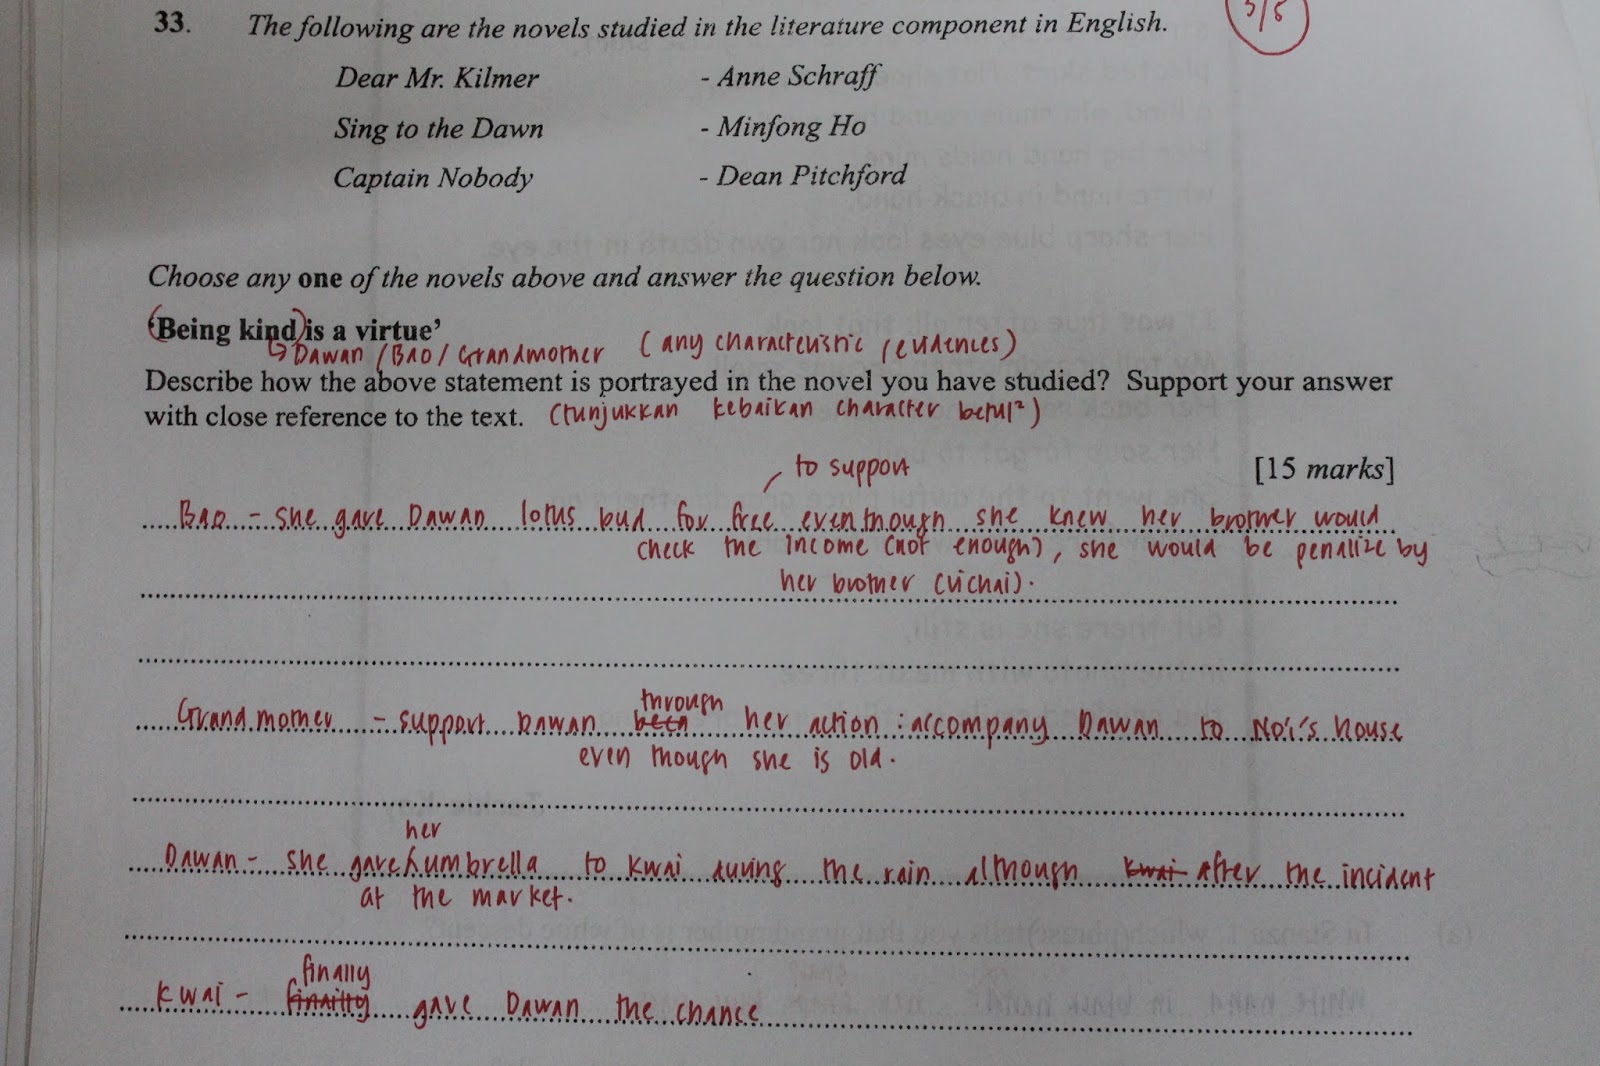 3/5
33. The following are the novels studied in the literature component in English.
Dear Mr. Kilmer - Anne Schraff
Sing to the Dawn - Minfong Ho
Captain Nobody - Dean Pitchford
Choose any one of the novels above and answer the question below.
('Being kind) is a virtue'
↳ Dawan / Bao / Grandmother (any characteristic / evidences)
Describe how the above statement is portrayed in the novel you have studied? Support your answer
with close reference to the text. (tunjukkan kebaikan character betul²)
[15 marks]
to support
Bao - she gave Dawan lotus bud for free eventhough she knew her brother would
check the income (not enough), she would be penalize by
her brother (vichai).
through
Grandmother - support Dawan her action : accompany Dawan to Noi's house
even though she is old.
her
Dawan - she gave umbrella to Kwai during the rain although kwai after the incident
at the market.
finally
Kwai - gave Dawan the chance